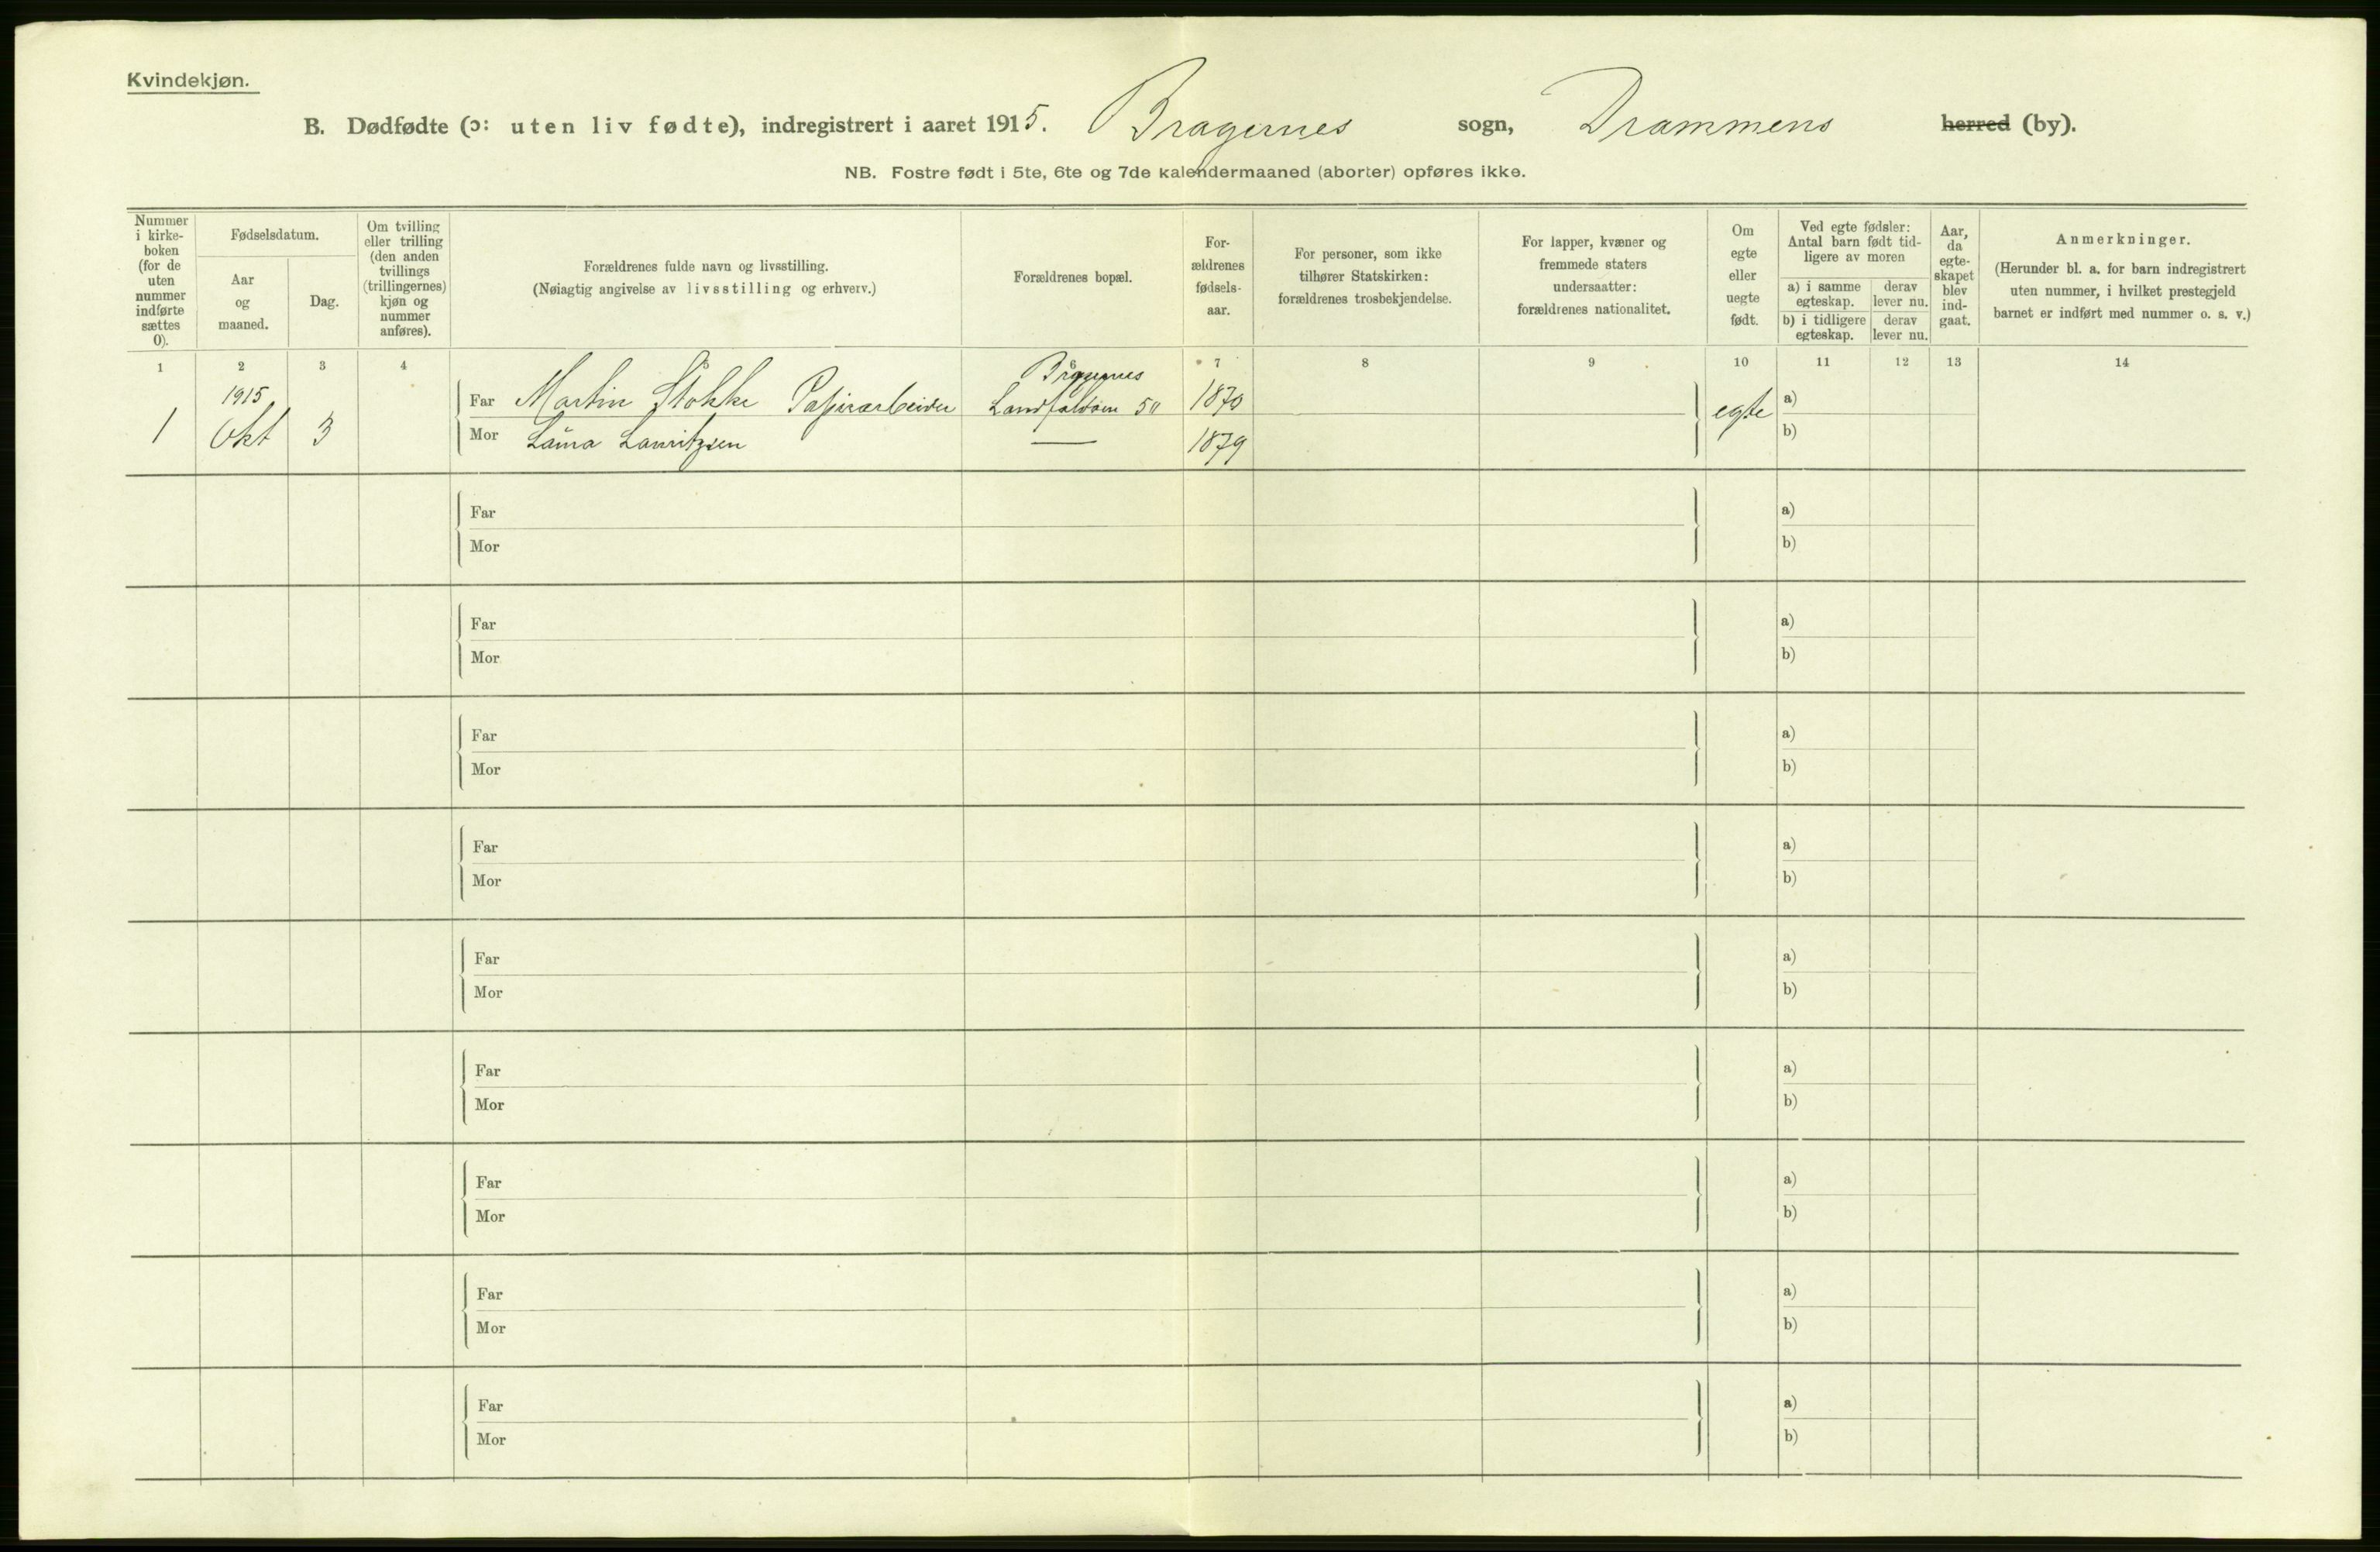 Kvindekjøn.
B. Dødfødte (ɔ: uten liv fødte), indregistrert i aaret 1915. Bragernes sogn, Drammens herred (by).
NB. Fostre født i 5te, 6te og 7de kalendermaaned (aborter) opføres ikke.
Nummer
i kirke-
boken
(for de
uten
nummer
indførte
sættes
0).
Fødselsdatum.
Aar
og
maaned.
Dag.
Om tvilling
eller trilling
(den anden
tvillings
(trillingernes)
kjøn og
nummer
anføres).
Forældrenes fulde navn og livsstilling.
(Nøiagtig angivelse av livsstilling og erhverv.)
Forældrenes bopæl.
For-
ældrenes
fødsels-
aar.
For personer, som ikke
tilhører Statskirken:
forældrenes trosbekjendelse.
For lapper, kvæner og
fremmede staters
undersaatter:
forældrenes nationalitet.
Om
egte
eller
uegte
født.
Ved egte fødsler:
Antal barn født tid-
ligere av moren
a) i samme
egteskap.
derav
lever nu.
b) i tidligere
egteskap.
derav
lever nu.
Aar,
da
egte-
skapet
blev
ind-
gaat.
Anmerkninger.
(Herunder bl. a. for barn indregistrert
uten nummer, i hvilket prestegjeld
barnet er indført med nummer o. s. v.)
1 2 3 4 6 7 8 9 10 11 12 13 14
1915 Bragernes
Far Martin Stokke Papirarbeider 1870 a)
1 Okt 3 egte
Mor Laura Lauritzsen — 1879 b)
Far a)
Mor b)
Far a)
Mor b)
Far a)
Mor b)
Far a)
Mor b)
Far a)
Mor b)
Far a)
Mor b)
Far a)
Mor b)
Far a)
Mor b)
Far a)
Mor b)